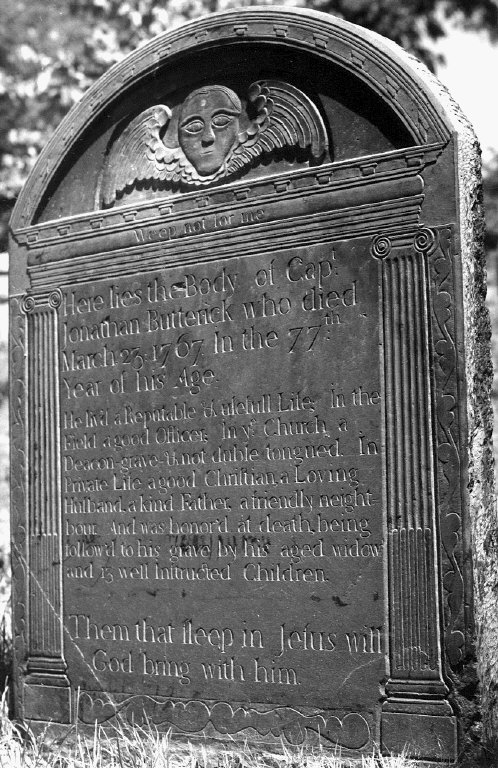 Weep not for me
Here lies the Body of Capt.
Jonathan Butterick who died
March 23: 1767, In the 77th.
Year of his Age.
He liv'd a Reputable & uſefull Life; In the
Field a good Officer; In ye. Church, a
Deacon grave & not duble tongued. In
Private Life a good Chriſtian, a Loving
Huſband, a kind Father, a friendly neight-
bour. And was honor'd at death, being
follow'd to his grave by his aged widow
and 13 well Inſtructed Children.
Them that ſleep in Jeſus will
God bring with him.